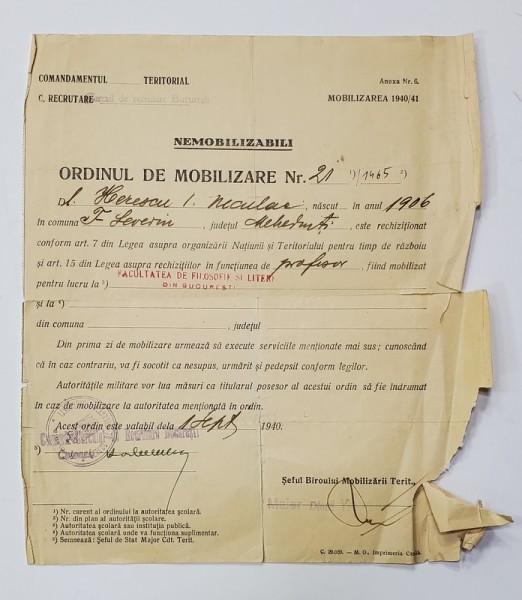 COMANDAMENTUL TERITORIAL
Anexa Nr. 6.
C. RECRUTARE Cercul de recrutare Bucuresti
MOBILIZAREA 1940/41
NEMOBILIZABILI
ORDINUL DE MOBILIZARE Nr. 21 ¹)/1465 ²)
D-l. Herescu I. Niculae, născut în anul 1906
în comuna T. Severin, județul Mehedinți, este rechiziționat
conform art. 7 din Legea asupra organizării Națiunii și Teritoriului pentru timp de războiu
și art. 15 din Legea asupra rechizițiilor în funcțiunea de profesor, fiind mobilizat
pentru lucru la ³) FACULTATEA DE FILOSOFIE SI LITERE
DIN BUCUREȘTI
și la ⁴)
din comuna , județul
Din prima zi de mobilizare urmează să execute serviciile menționate mai sus; cunoscând
că în caz contrariu, va fi socotit ca nesupus, urmărit și pedepsit conform legilor.
Autoritățile militare vor lua măsuri ca titularul posesor al acestui ordin să fie îndrumat
în caz de mobilizare la autoritatea menționată în ordin.
Acest ordin este valabil dela 1 Sept 1940.
⁵) Colonel
Șeful Biroului Mobilizării Terit.,
Maior
¹) Nr. curent al ordinului la autoritatea școlară.
²) Nr. din plan al autorității școlare.
³) Autoritatea școlară sau instituția publică.
⁴) Autoritatea școlară unde va funcționa suplimentar.
⁵) Semnează: Șeful de Stat Major Cdt. Terit.
C. 29.039. — M. O., Imprimeria